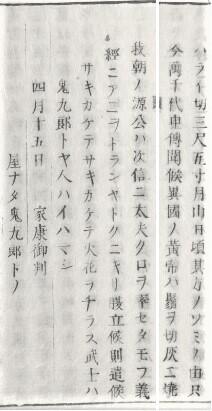 ハラ付切三尺五寸月山日頃其方ノソミノ由只
今萬千代申傳聞候異國ノ黄帝ハ鬚ヲ切灰ニ焼
我朝ノ源公ハ次信ニ太夫クロヲ牽セタモフ義
經ニアニヲトランヤトクニキリ援立候則遣候
サキカケテサキカケテ火花ヲチラス武士ハ
鬼九郎トヤ人ハイハマシ
四月十五日 家康御判
屋ナタ鬼九郎トノ